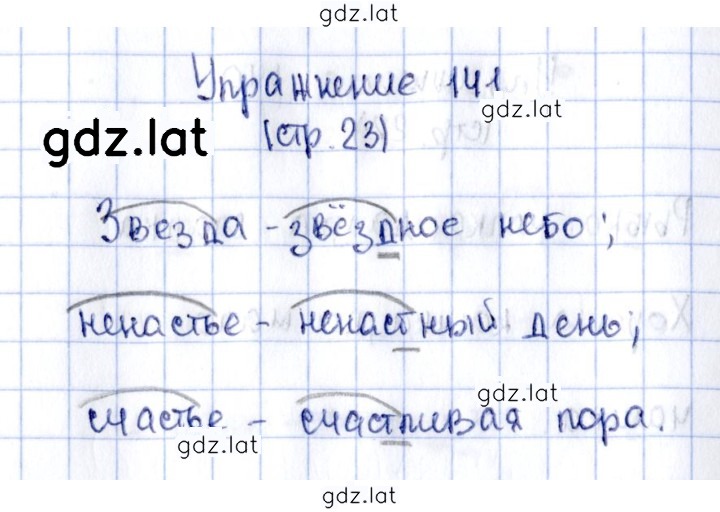 gdz.lat
Упражнение 141
gdz.lat
gdz.lat
(стр. 23)
Звезда - звёздное небо;
ненастье - ненастный день;
gdz.lat
счастье - счастливая пора.
gdz.lat
gdz.lat